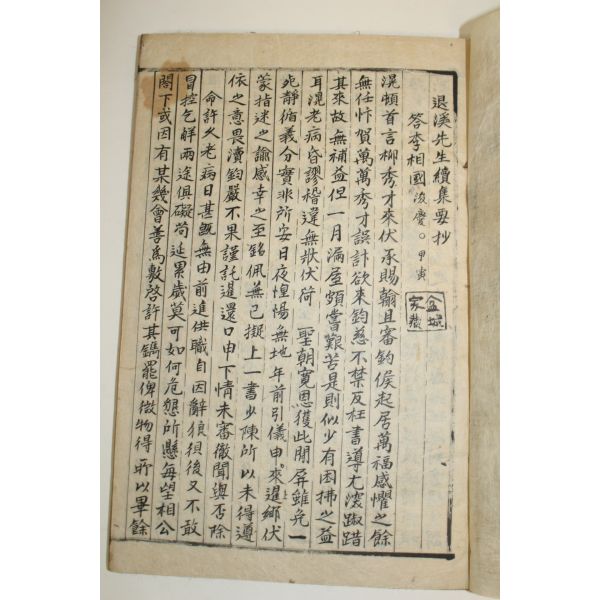 退溪先生續集要抄
答李相國浚慶○甲寅
滉頓首言柳秀才來伏承賜翰且審鈞候起居萬福感懼之餘
無任忭賀萬萬秀才誤計欲來鈞慈不禁反枉書導尤深踧踖
其來故無補益但一月漏屋頗嘗艱苦是則似少有困拂之益
耳滉老病昏謬稽違無狀伏荷 聖朝寬恩獲此閒屏雖免一
死靜循義分實非所安日夜惶惕無地年前引儀申來暹鄉伏
蒙指迷之諭感幸之至銘佩無已擬上一書少陳所以未得遵
依之意畏瀆鈞嚴不果謹託暹還口申下情未審徹聞與否除
命許久老病日甚旣無由前進供職自因辭狼狽後又不敢
冒控乞解兩途俱礙苟延累歲莫可如何危懇所懸每望相公
閤下或因有某幾會善爲敷啓許其鐫罷俾微物得所以畢餘
金城
家藏